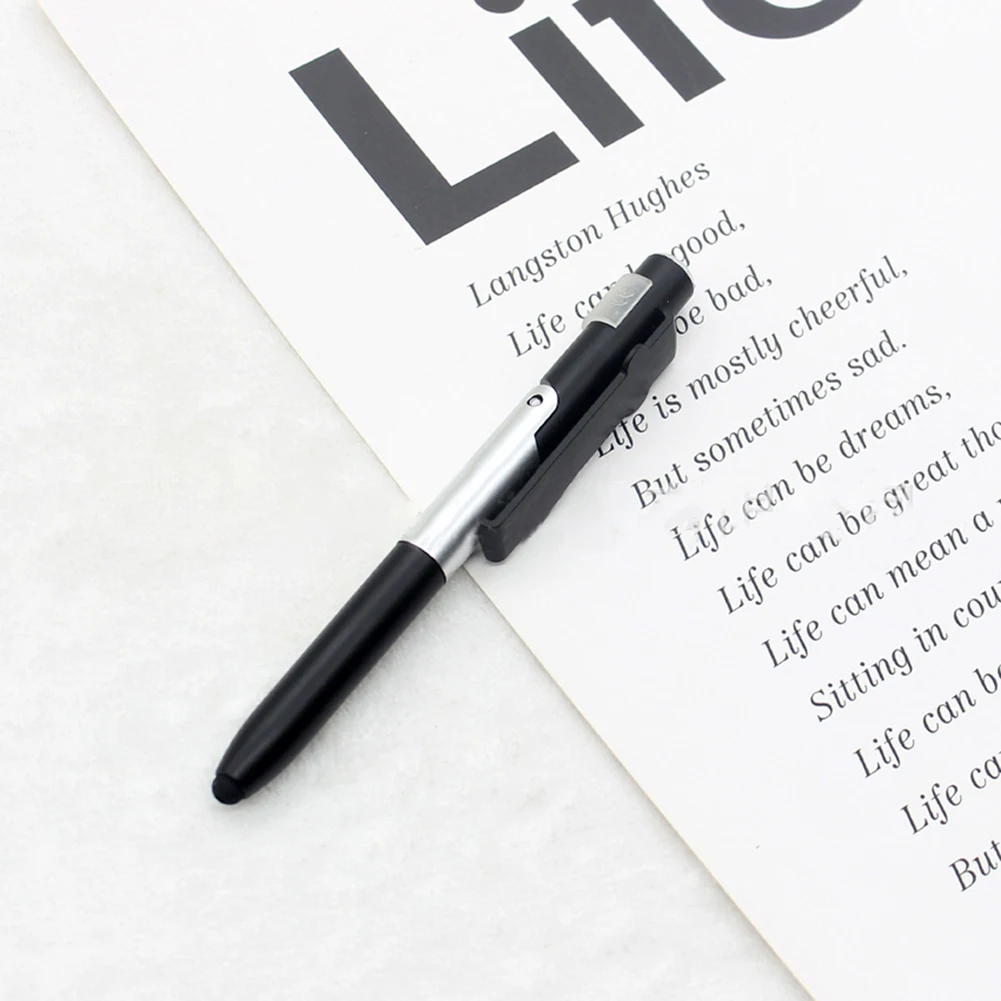 Life
Langston Hughes
Life can good,
be bad,
Life is mostly cheerful,
But sometimes sad.
Life can be dreams,
Life can be great
Life can mean a
Sitting in
Life can
Life
But